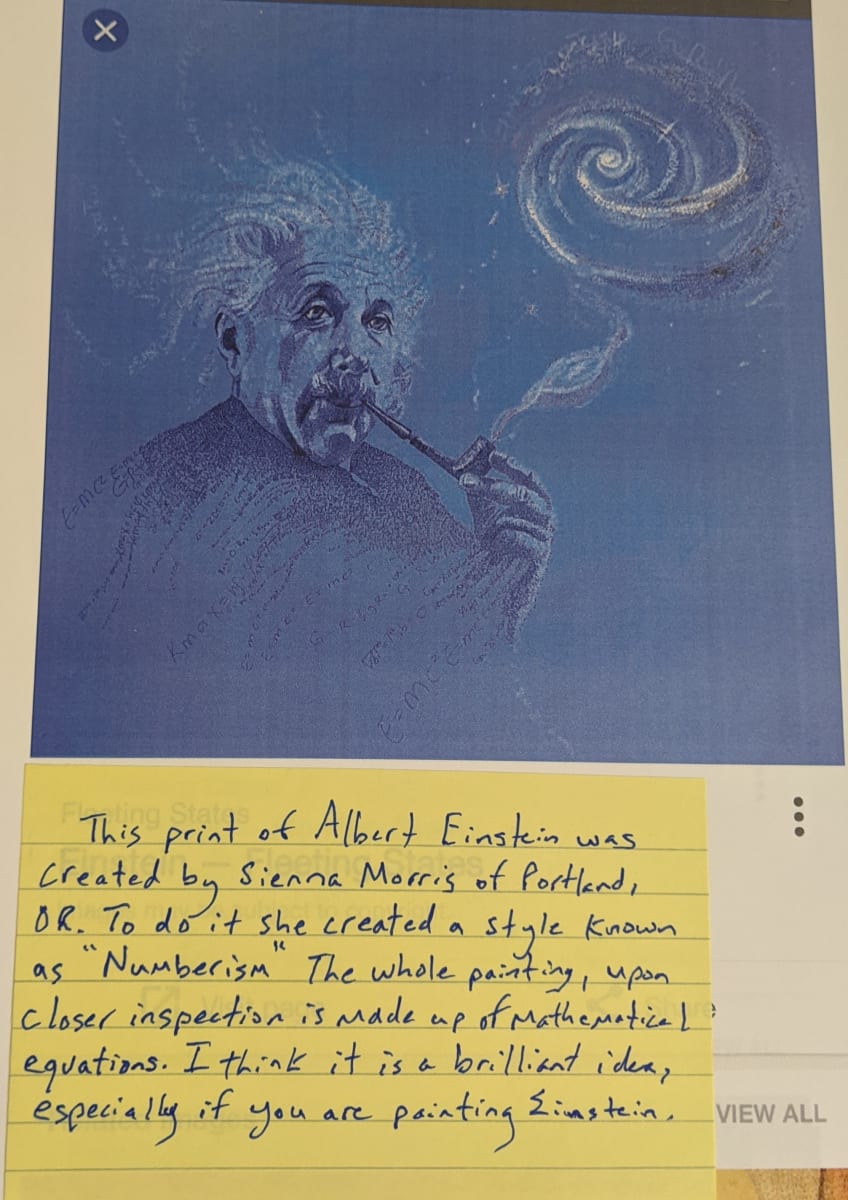 E=mc²
Kmax=
E=mc²
This print of Albert Einstein was
created by Sienna Morris of Portland,
OR. To do it she created a style known
as "Numberism" The whole painting, upon
closer inspection is made up of mathematical
equations. I think it is a brilliant idea,
especially if you are painting Einstein.
Fleeting States
Einstein — Fleeting States
Visit page
Share
VIEW ALL